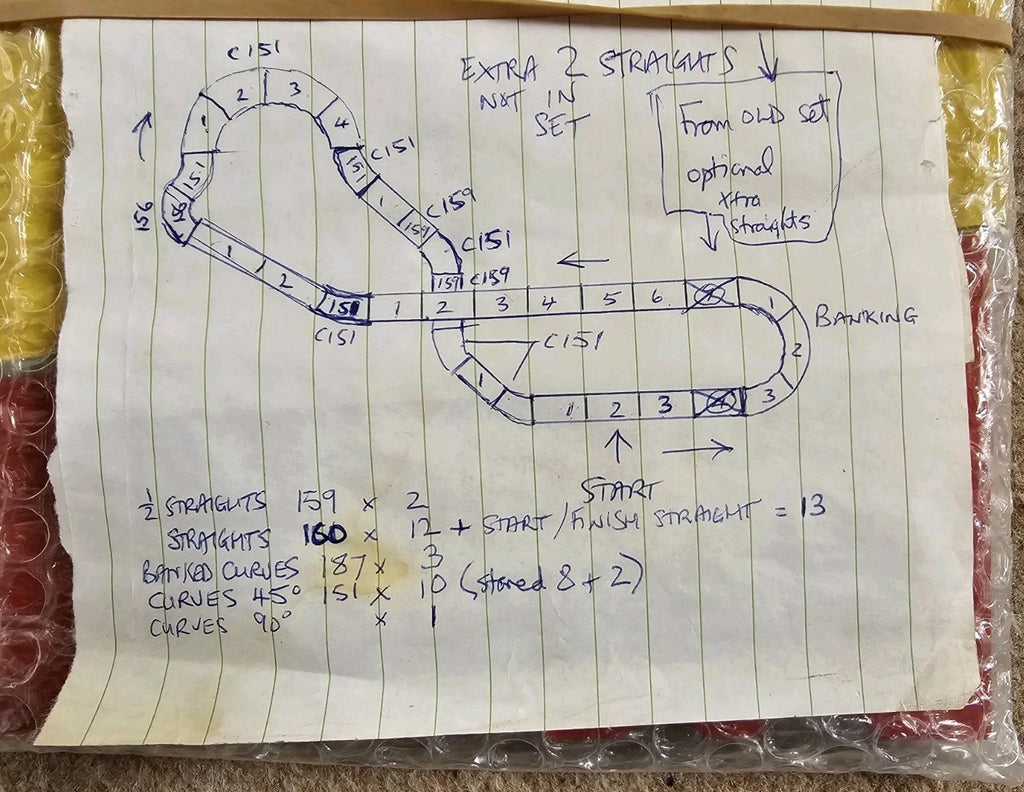 C151
EXTRA 2 STRAIGHTS
NOT IN
SET
From OLD set
optional
xtra
straights
1 2 3 4
151
C151
151
1
159
C159
C151
159 C159
1 2
151
C151
1 2 3 4 5 6
1
2
3
BANKING
C151
1
1 2 3
START
½ STRAIGHTS 159 x 2
STRAIGHTS 160 x 12 + START/FINISH STRAIGHT = 13
BANKED CURVES 187 x 3
CURVES 45° 151 x 10 (stored 8 + 2)
CURVES 90° x 1